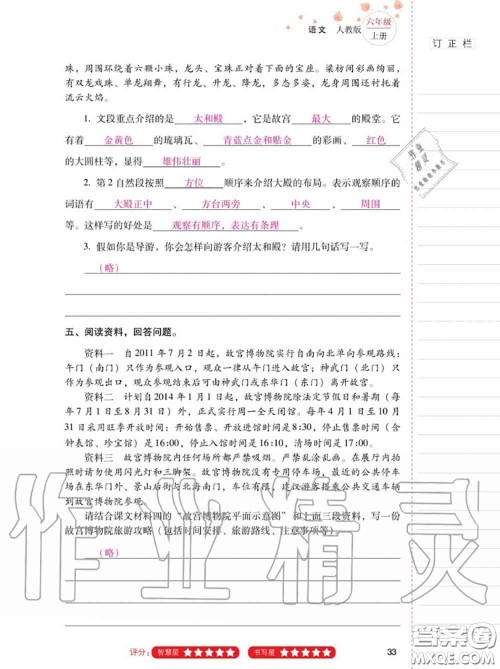 语文 人教版 六年级上册
订正栏
珠，周围环绕着六颗小珠，龙头、宝珠正对着下面的宝座。梁枋间彩画绚丽，
有双龙戏珠、单龙翔舞，有行龙、升龙、降龙，多态多姿，龙身周围还衬托着
流云火焰。
1. 文段重点介绍的是 太和殿 ，它是故宫 最大 的殿堂。它
有着 金黄色 的琉璃瓦、 青蓝点金和贴金 的彩画、 红色
的大圆柱等，显得 雄伟壮丽 。
2. 第 2 自然段按照 方位 顺序来介绍大殿的布局。表示观察顺序的
词语有 大殿正中 、 方台两旁 、 中央 、 周围
等。这样写的好处是 观察有顺序，表达有条理 。
3. 假如你是导游，你会怎样向游客介绍太和殿？请用几句话写一写。
（略）
五、阅读资料，回答问题。
资料一 自 2011 年 7 月 2 日起，故宫博物院实行自南向北单向参观路线：
午门（南门）只作为参观入口，观众一律从午门进入故宫；神武门（北门）只
作为参观出口，观众参观结束后可由神武门或东华门（东门）离开故宫。
资料二 计划自 2014 年 1 月 1 日起，故宫博物院除法定节假日和暑期（每
年 7 月 1 日至 8 月 31 日）外，正式实行周一全天闭馆。每年 4 月 1 日至 10 月
31 日采用旺季开放时间：开始售票、开放进馆时间是8:30，停止售票时间（含
钟表馆、珍宝馆）是16:00，停止入馆时间是16:10，清场时间是17:00。
资料三 故宫博物院内任何场所都严禁吸烟。严禁乱涂乱画。在展厅内拍
照时请勿使用闪光灯和三脚架。故宫博物院没有专用停车场，最近的公共停车
场在东华门外，景山后街与北海南门，车位非常有限，建议游客搭乘公共交通车辆
到故宫博物院参观。
请结合课文材料四的“故宫博物院平面示意图”和上面三段资料，写一份
故宫博物院旅游攻略（包括时间安排、旅游路线、注意事项等）
（略）
作业精灵
评分： 智慧星 ★★★★★ 书写星 ★★★★★
33
答案圈
MXQE.COM